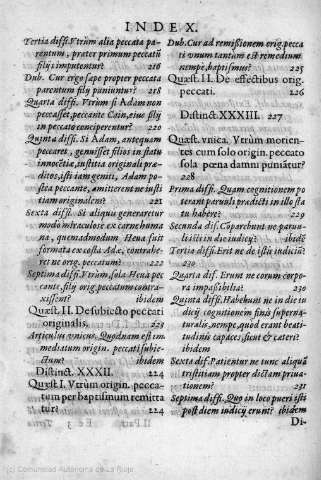 INDEX.
Tertia diff. Vtrùm alia peccata pa-
rentum, præter primum peccatũ
filijs imputentur? 216
Dub. Cur ergo sæpe propter peccata
parentum filij puniuntur? 218
Quarta diff. Vtrum si Adam non
peccasset, peccante Cain, eius filij
in peccato conciperentur? 220
Quinta diff. Si Adam, antequam
peccaret, genuisset filios in statu
innocẽtiæ, iustitia originali præ-
ditos, isti iam geniti, Adam po-
stea peccante, amitterent ne iusti
tiam originalem? 221
Sexta diff. Si aliquis generaretur
modo miraculose ex carne huma
na, quemadmodum Heua fuit
formata ex costa Adæ, contrahe-
ret ne orig. peccatum? 222
Septima diff. Vtrùm, sola Heua pec
cante, filij orig. peccatum contra-
xissent? ibidem
Quæst. II. De subiecto peccati
originalis. 223
Articulus vnicus. Quodnam est im
mediatum origin. peccati subie-
ctum? ibidem
Distinct. XXXII. 224
Quæst. I. Vtrùm origin. pecca-
tum per baptismum remitta
tur? 224
Dub. Cur ad remissionem orig. pecca
ti vnum tantum est remedium
nempe, baptismus? 225
Quæst. II. De effectibus orig.
peccati. 226
Distinct. XXXIII. 227
Quæst. vnica, Vtrùm morien-
tes cum solo origin. peccato
sola pœna damni puniãtur?
228
Prima diff. Quam cognitionem po
terant paruuli prædicti in illo sta
tu habere? 229
Secunda dif. Comparebunt ne paruu-
li isti in die iudicij? ibidẽ
Tertia diff. Erit ne de istis iudiciũ?
230
Quarta dif. Erunt ne eorum corpo-
ra impassibilia? 230
Quinta diff. Habebunt ne in die iu
dicij cognitionem finis superna-
turalis, nempe, quod erant beati-
tudinis capaces, sicut & cæteri?
ibidem
Sexta dif. Patientur ne tunc aliquã
tristitiam propter dictam priua-
tionem? 231
Septima diff. Quo in loco pueri isti
post diem iudicij erunt? ibidem
Di-
(c) Comunidad Autónoma de La Rioja